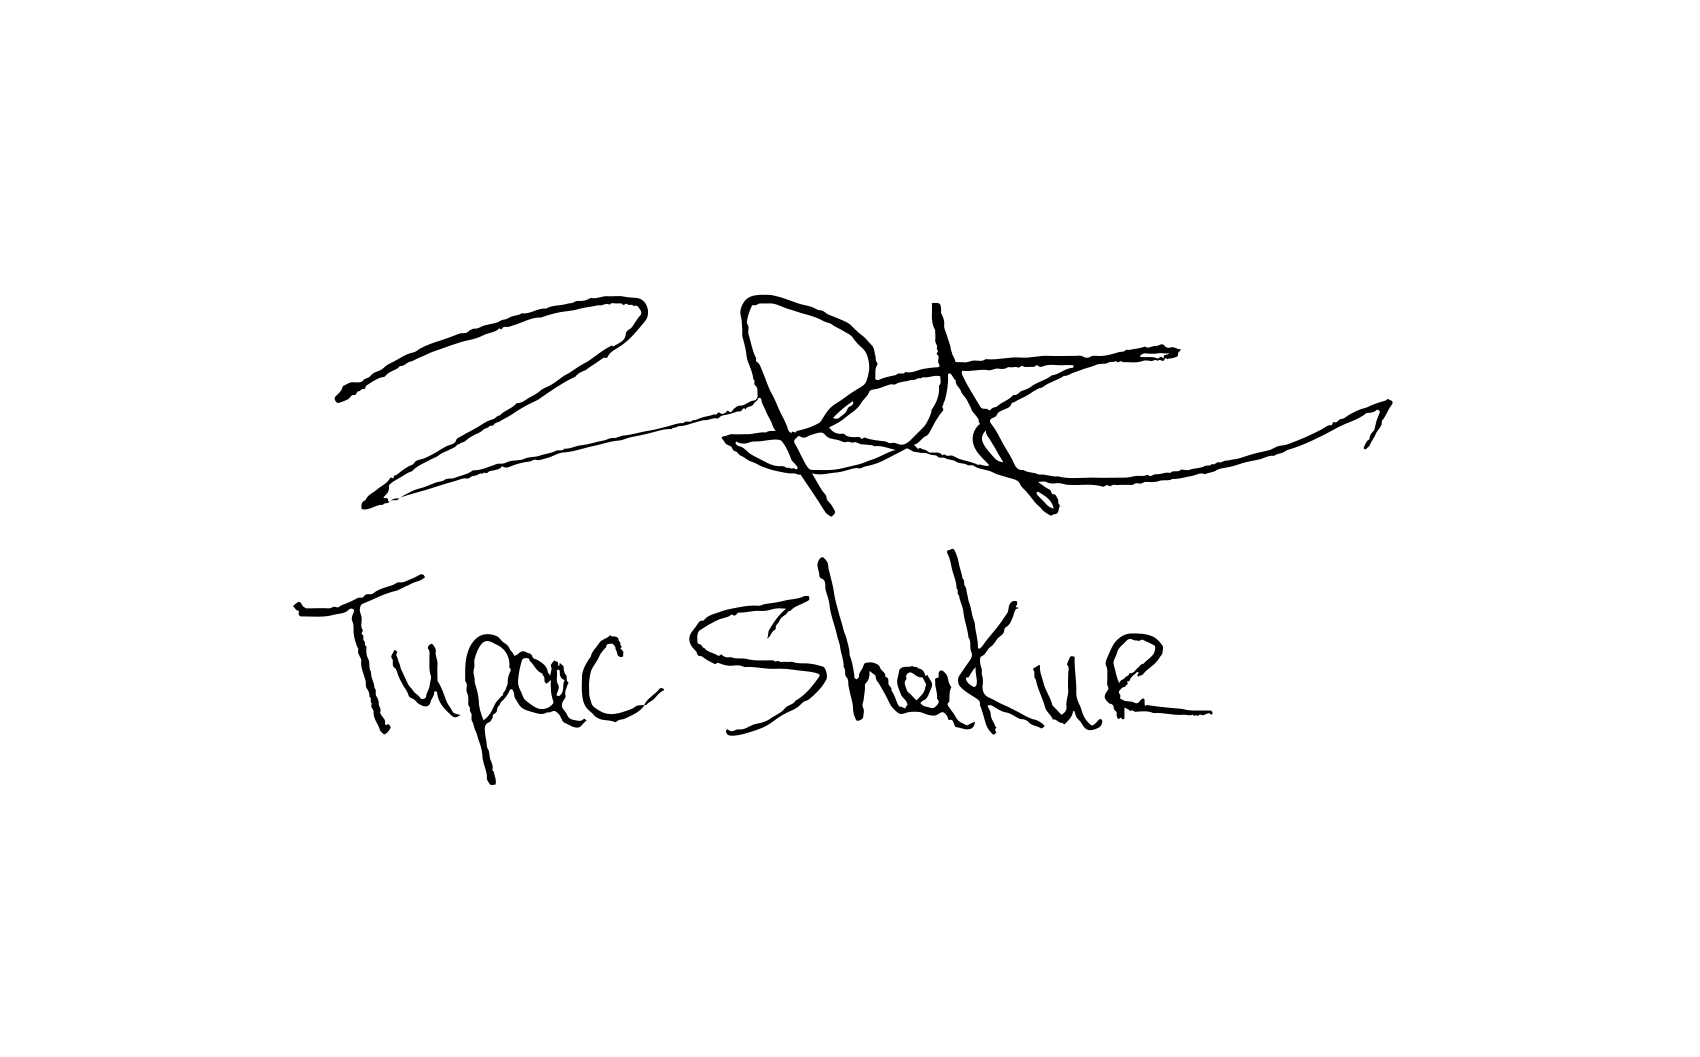 2PK
Tupac Shakur